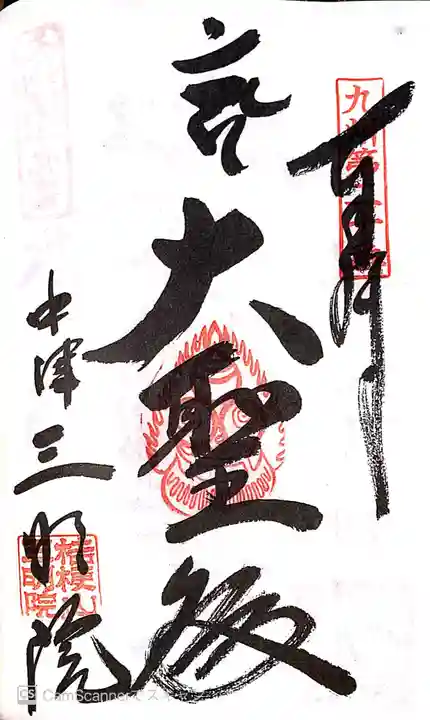 奉拝
大聖殿
中津三明院
九州第二十
桔梗山
三明院
CS CamScannerでスキャン